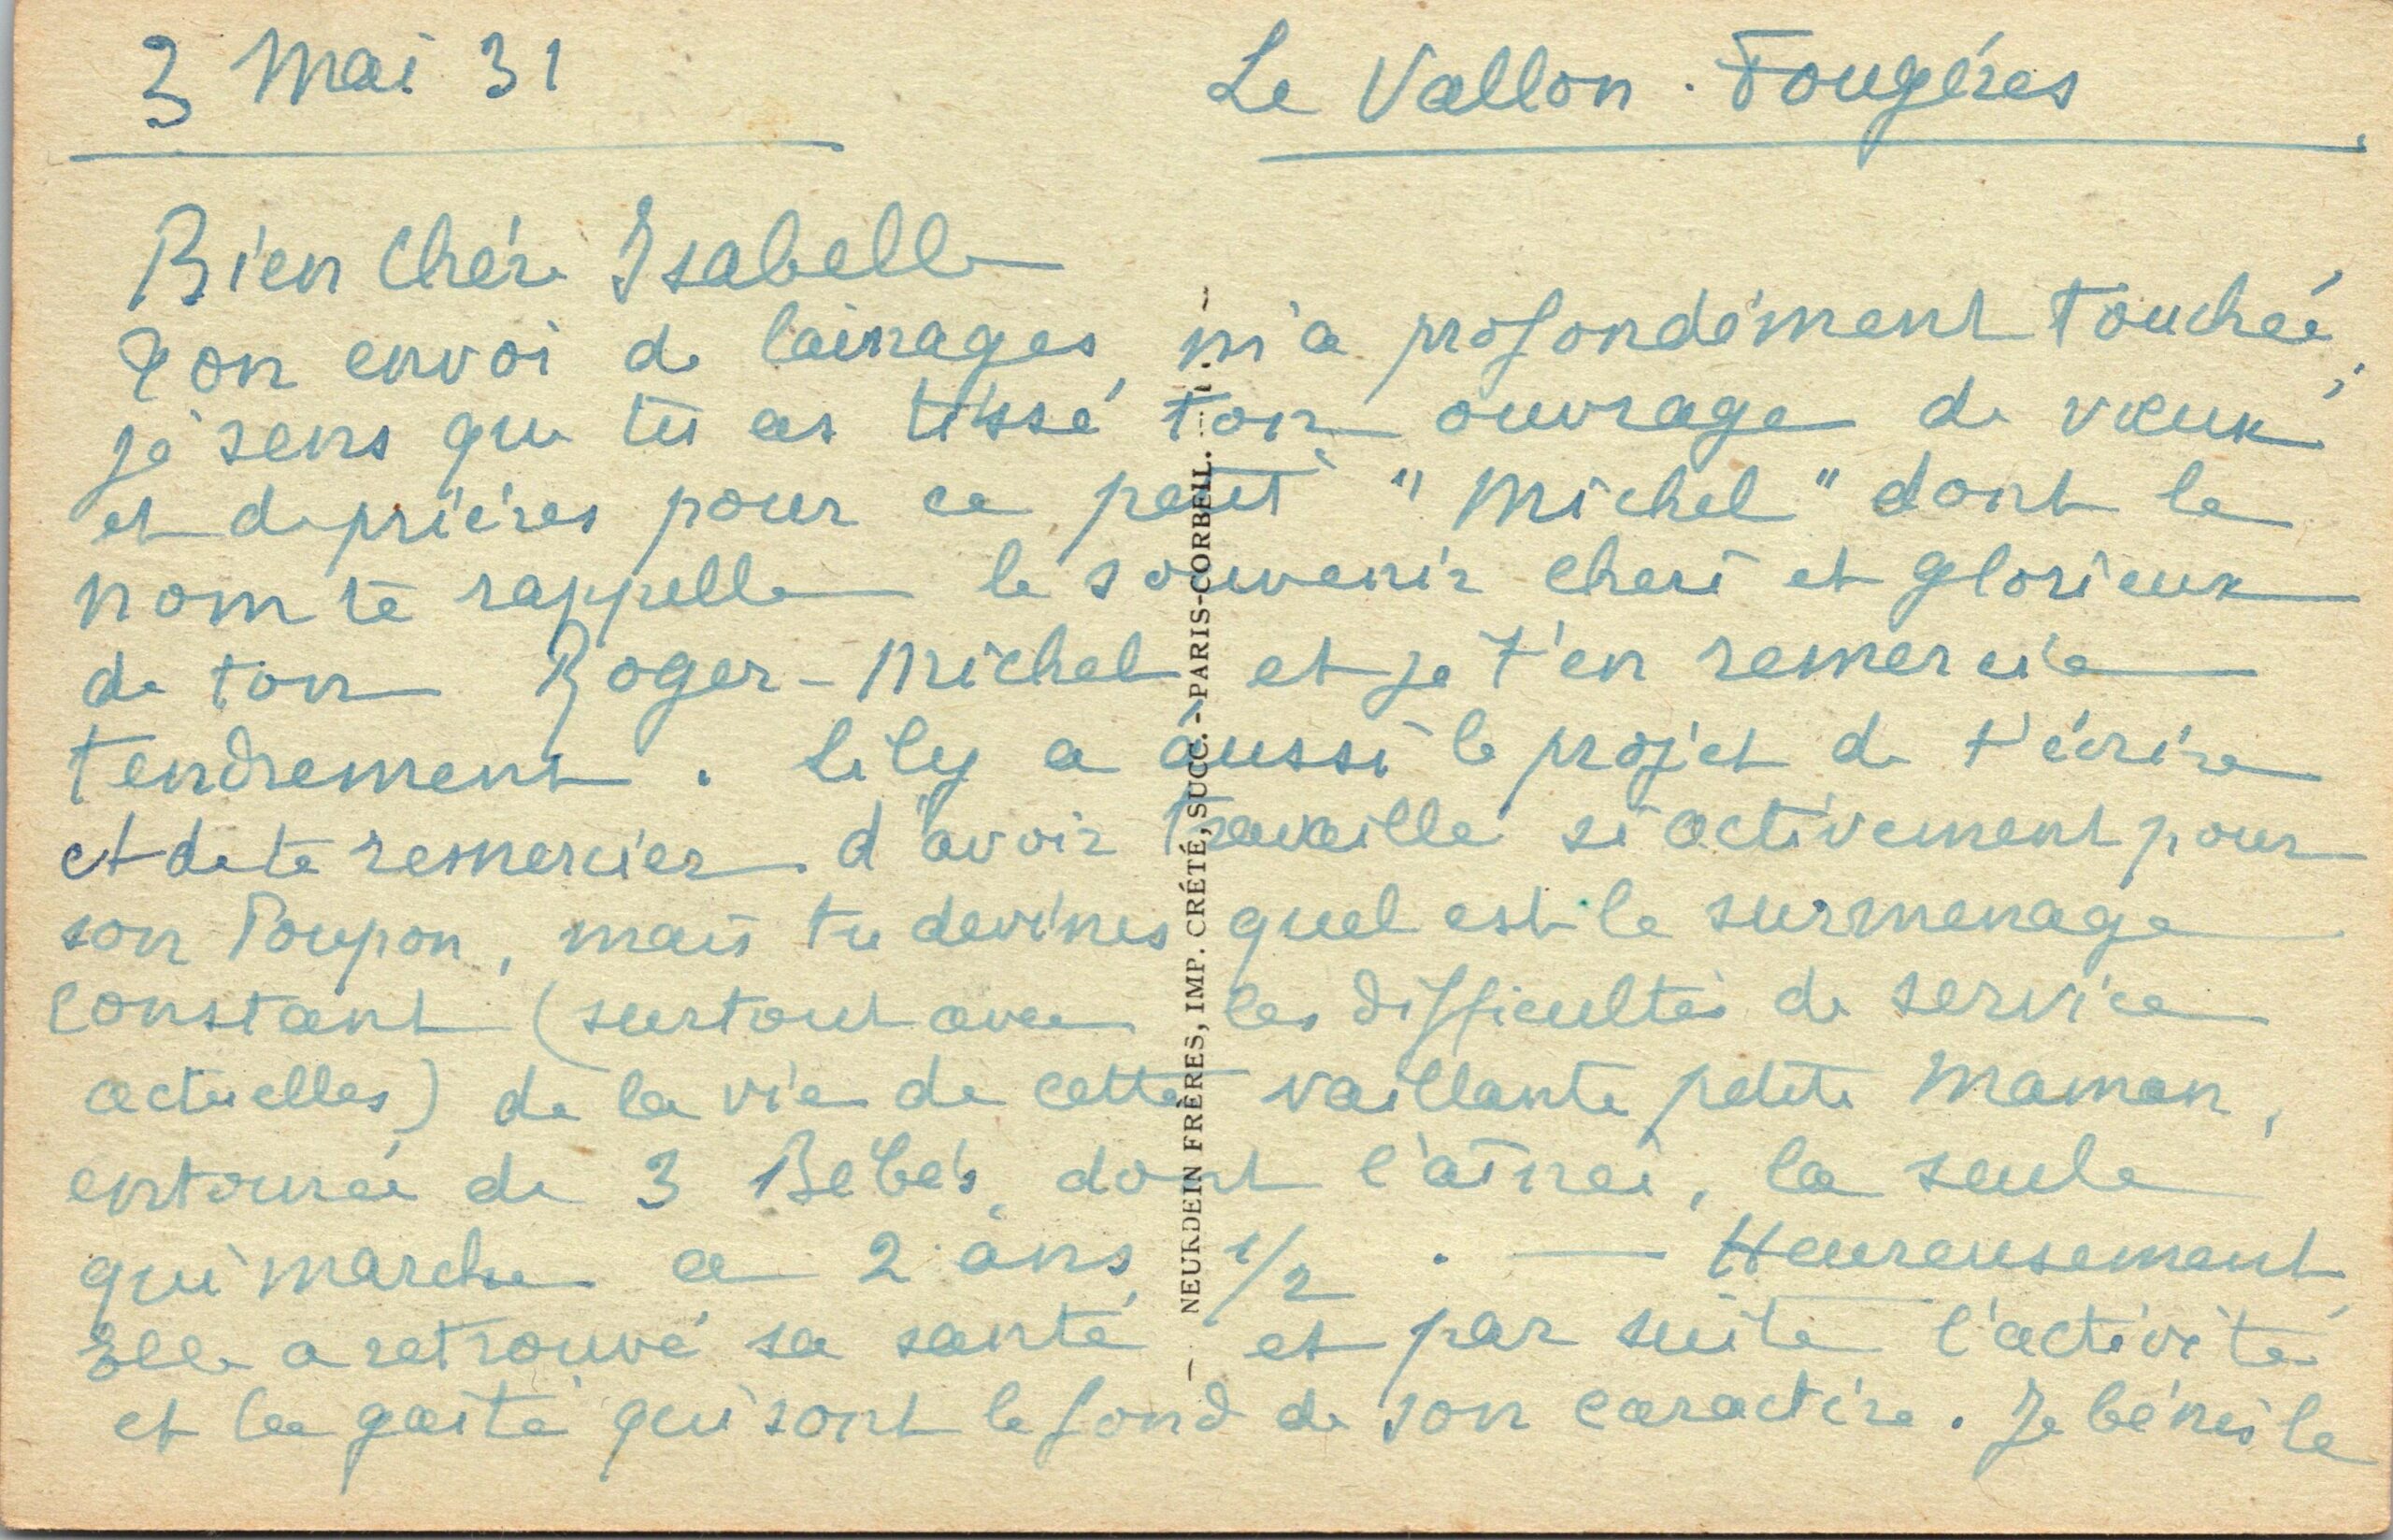 3 Mai 31
Le Vallon . Fougères
Bien Chère Isabelle
Ton envoi de lainages, m'a profondément touchée,
je sens que tu as tissé ton ouvrage de vœux
et de prières pour ce petit "Michel" dont le
nom te rappelle le souvenir cheri et glorieux
de ton Roger-Michel et je t'en remercie
tendrement . Lily a aussi le projet de t'écrire
et de te remercier d'avoir travaillé si activement pour
son Poupon, mais tu devines quel est le surmenage
constant (surtout avec les difficultés de service
actuelles) de la vie de cette vaillante petite Maman,
entourée de 3 Bébés, dont l'aînée, la seule
qui marche a 2 ans 1/2 . — Heureusement
Elle a retrouvé sa santé et par suite l'activité
et la gaité qui sont le fond de son caractère. Je bénis le
— NEURDEIN FRÈRES, IMP. CRÉTÉ, SUCC. - PARIS-CORBEIL. —